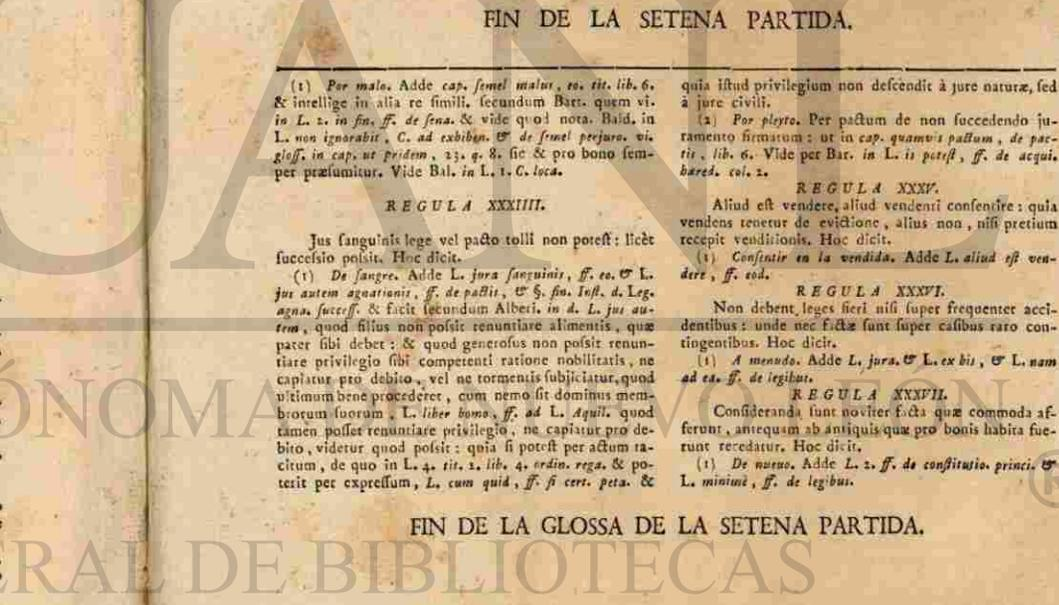 FIN DE LA SETENA PARTIDA.
(1) Por malo. Adde cap. semel malus, eo. tit. lib. 6.
& intellige in alia re simili. secundum Bart. quem vi.
in L. 2. in fin. ff. de sena. & vide quod nota. Bald. in
L. non ignorabit, C. ad exhiben. & de semel perjuro. vi.
gloss. in cap. ut pridem, 23. q. 8. sic & pro bono sem-
per præsumitur. Vide Bal. in L. 1. C. loca.
REGULA XXXIIII.
Jus sanguinis lege vel pacto tolli non potest: licèt
successio possit. Hoc dicit.
(1) De sangre. Adde L. jura sanguinis, ff. eo. & L.
jus autem agnationis, ff. de pactis, & §. fin. Inst. d. Leg.
agna. success. & facit secundum Alberi. in d. L. jus au-
tem, quod filius non possit renuntiare alimentis, quæ
pater sibi debet: & quod generosus non possit renun-
tiare privilegio sibi competenti ratione nobilitatis, ne
capiatur pro debito, vel ne tormentis subjiciatur, quod
ultimum bene procederet, cum nemo sit dominus mem-
brorum suorum, L. liber homo, ff. ad L. Aquil. quod
tamen posset renuntiare privilegio, ne capiatur pro de-
bito, videtur quod possit: quia si potest per actum ta-
citum, de quo in L. 4. tit. 2. lib. 4. ordin. rega. & po-
terit per expressum, L. cum quid, ff. si cert. peta. &
quia istud privilegium non descendit à jure naturæ, sed
à jure civili.
(2) Por pleyto. Per pactum de non succedendo ju-
ramento firmatum: ut in cap. quamvis pactum, de pac-
tis, lib. 6. Vide per Bar. in L. is potest, ff. de acqui.
hæred. col. 2.
REGULA XXXV.
Aliud est vendere, aliud vendenti consentire: quia
vendens tenetur de evictione, alius non, nisi pretium
recepit venditionis. Hoc dicit.
(1) Consentir en la vendida. Adde L. aliud est ven-
dere, ff. eod.
REGULA XXXVI.
Non debent leges fieri nisi super frequenter acci-
dentibus: unde nec factæ sunt super casibus raro con-
tingentibus. Hoc dicit.
(1) A menudo. Adde L. jura. & L. ex his, & L. nam
ad ea. ff. de legibus.
REGULA XXXVII.
Consideranda sunt noviter facta quæ commoda af-
ferunt, antequam ab antiquis quæ pro bonis habita fue-
runt recedatur. Hoc dicit.
(1) De nuevo. Adde L. 2. ff. de constitutio. princi. &
L. minimè, ff. de legibus.
FIN DE LA GLOSSA DE LA SETENA PARTIDA.